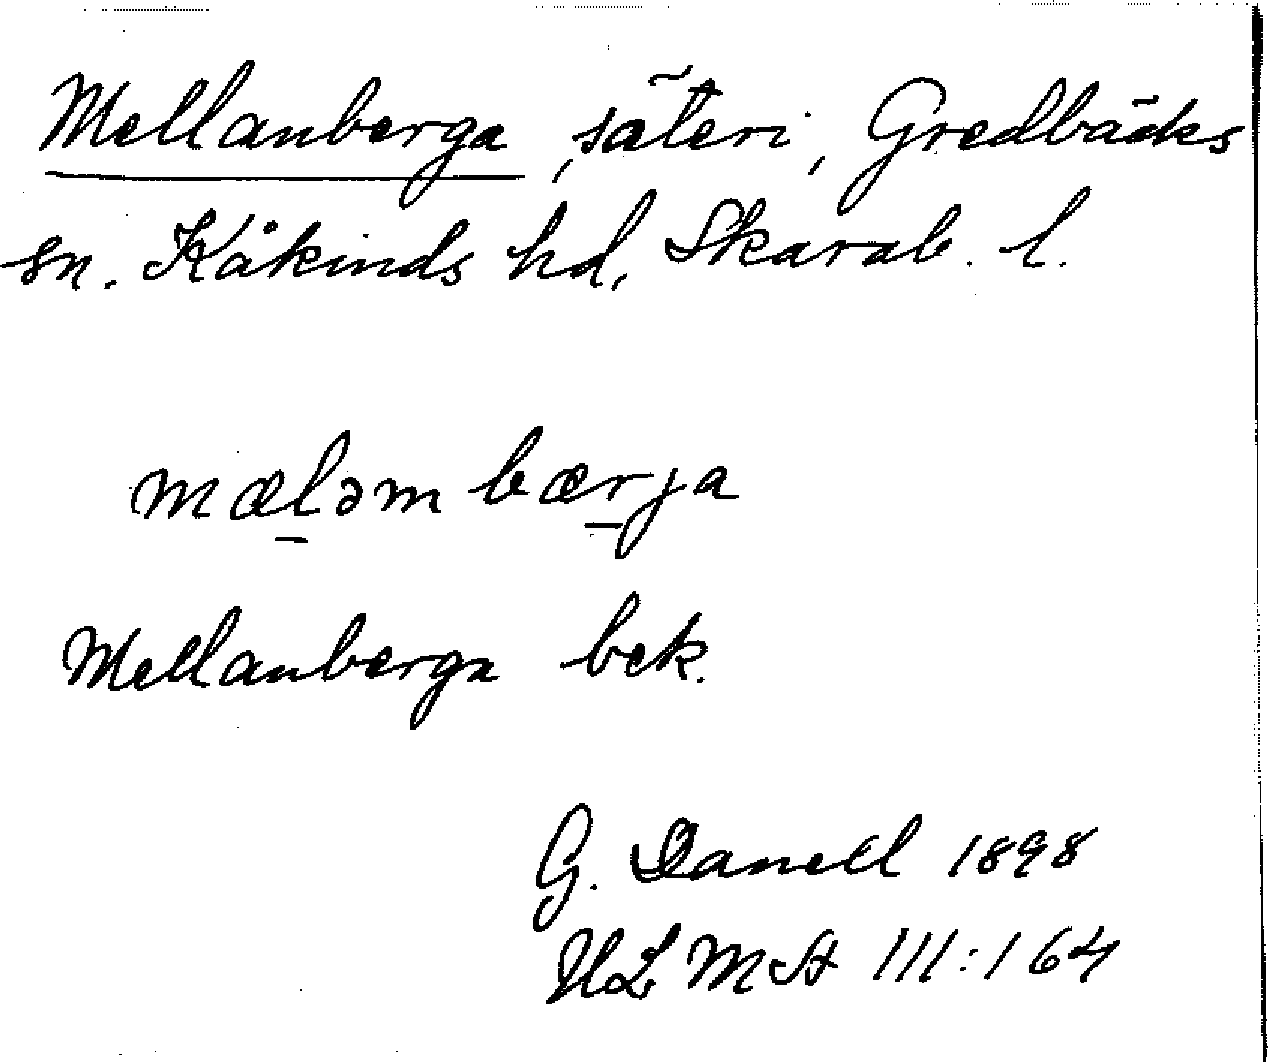 Mellanberga, säteri, Gredbäcks
sn. Kåkinds hd, Skarab. l.
mæləm bærja
Mellanberga bek.
G. Danell 1898
ULMA III:164